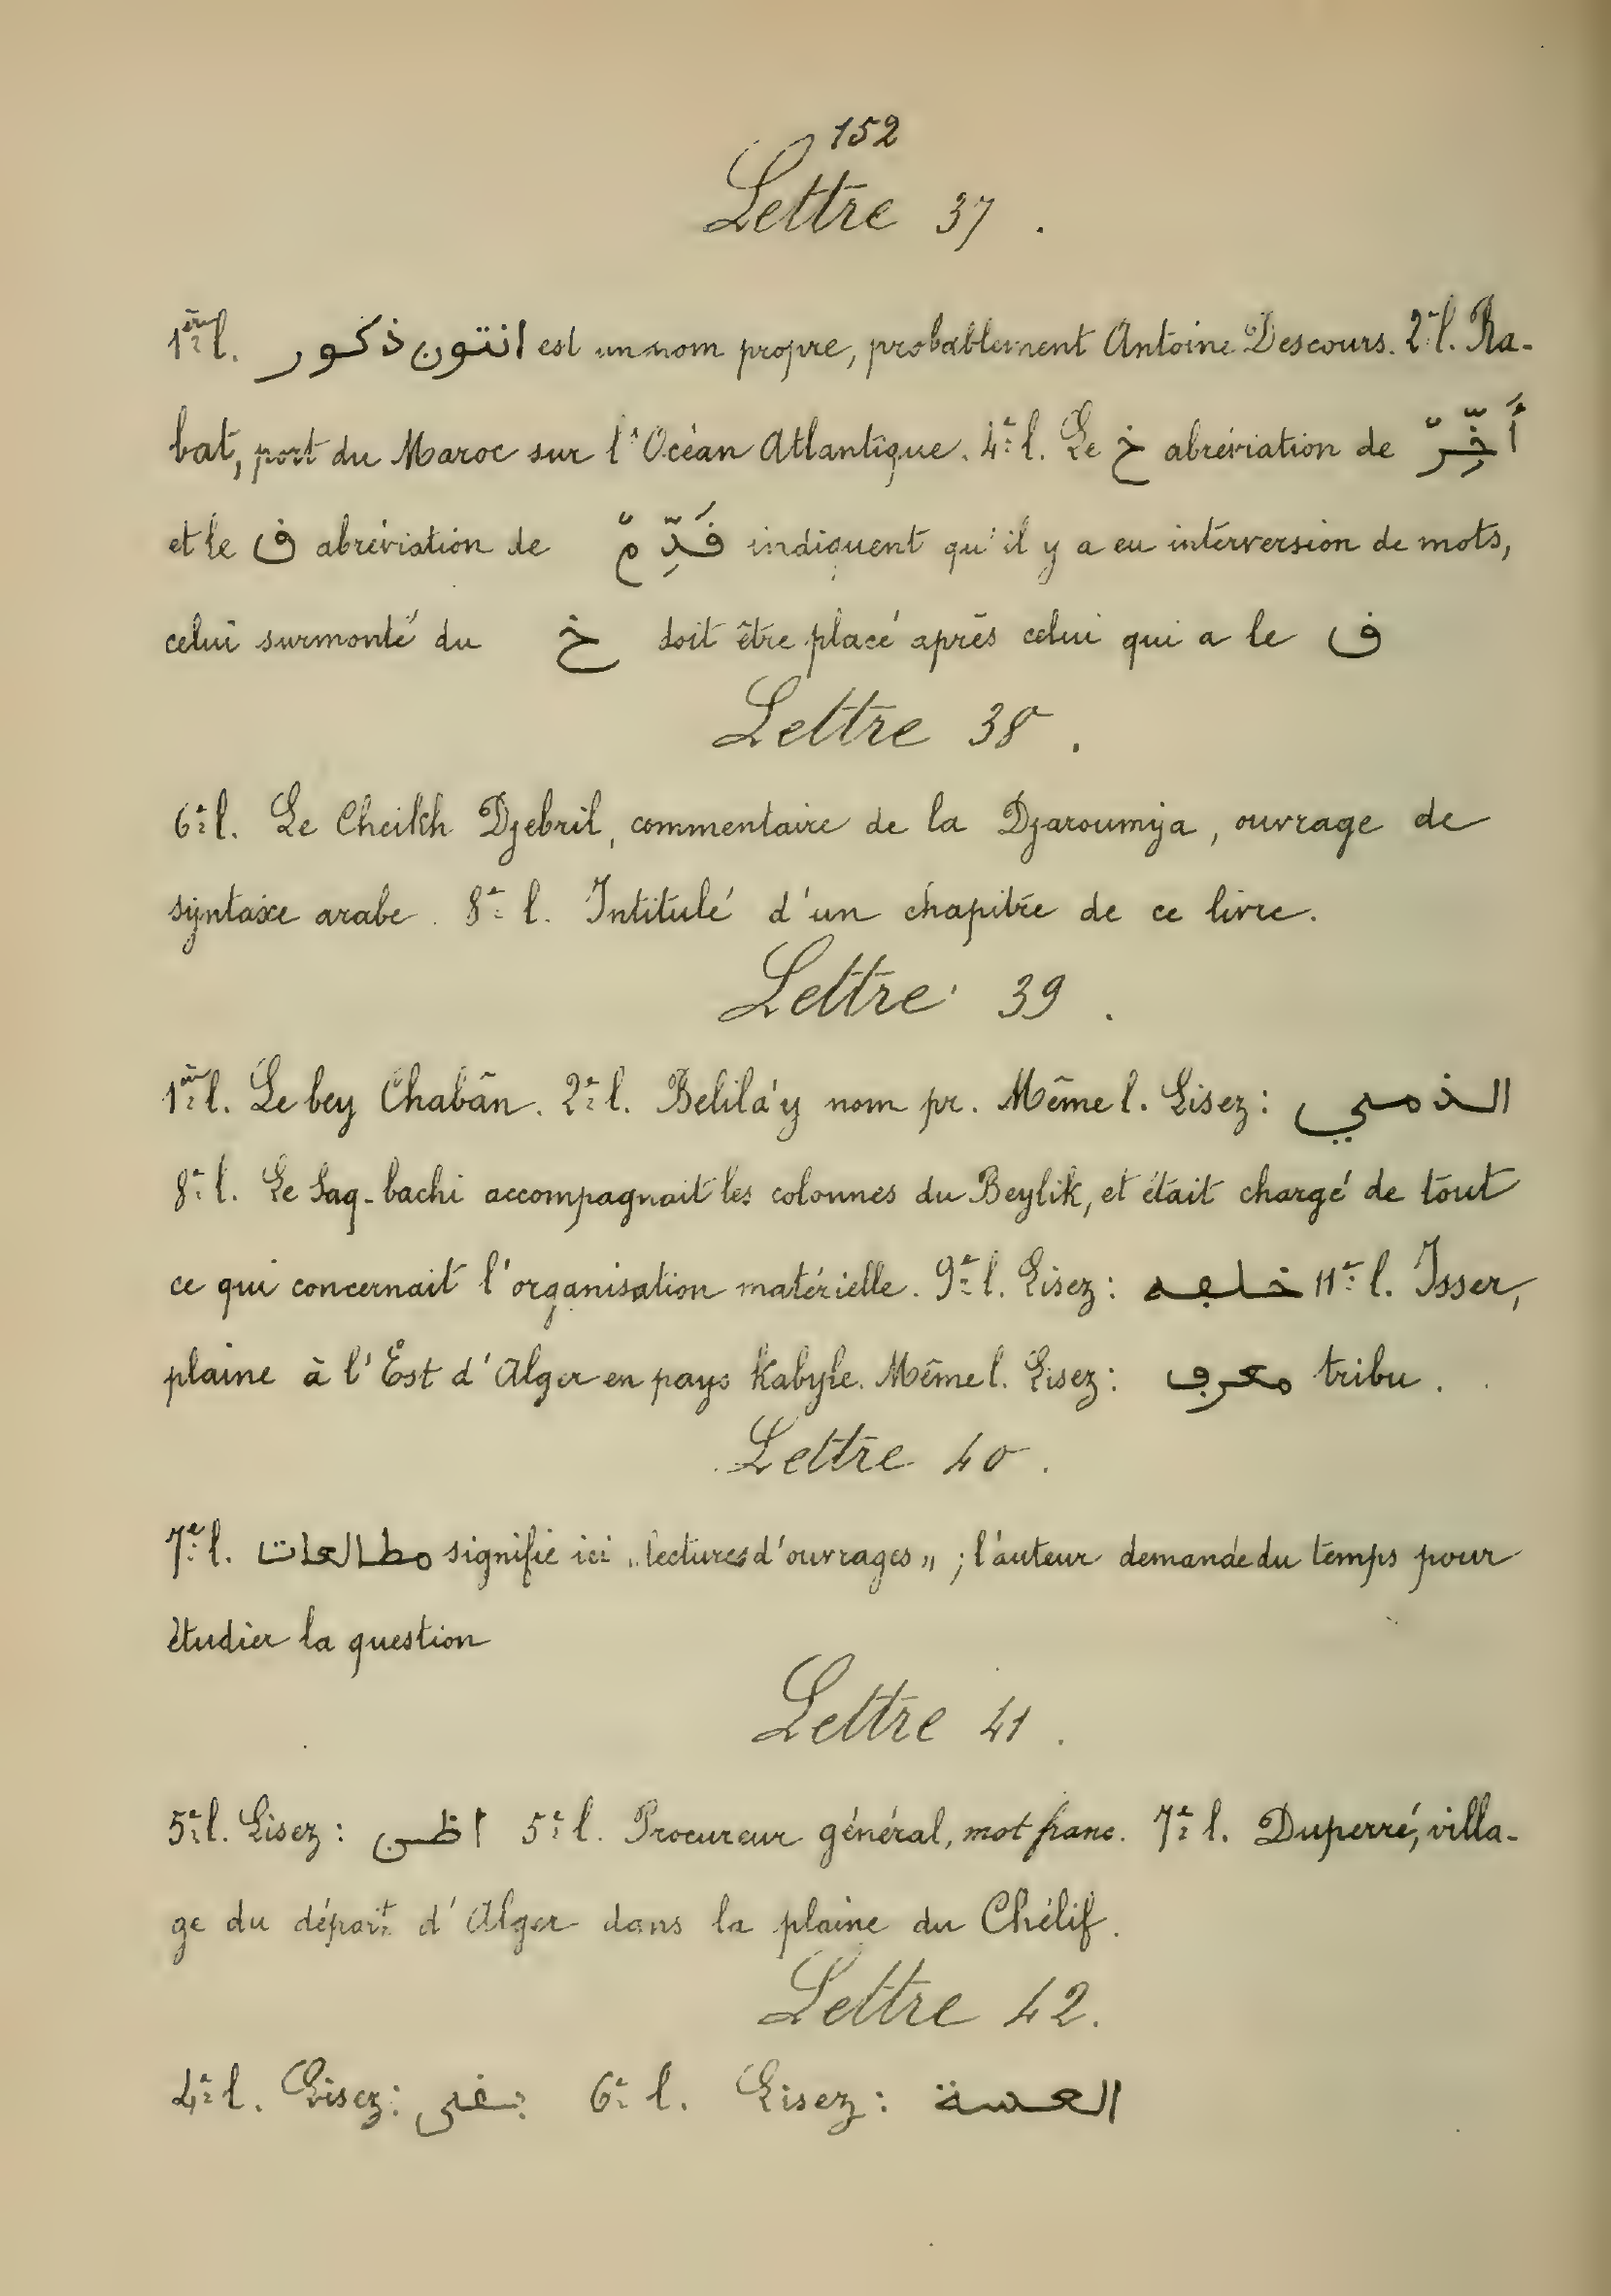 152
Lettre 37.
1ère l. انتون ذكور est un nom propre, probablement Antoine Descours. 2e l. Ra-
bat, port du Maroc sur l'Océan Atlantique. 4e l. Le خ abréviation de أَخِّرْ
et le ڢ abréviation de فَدِّمْ indiquent qu'il y a eu interversion de mots,
celui surmonté du خ doit être placé après celui qui a le ڢ
Lettre 38.
6e l. Le Cheikh Djebril, commentaire de la Djaroumija, ouvrage de
syntaxe arabe. 8e l. Intitulé d'un chapitre de ce livre.
Lettre 39.
1ère l. Le bey Chabân. 2e l. Belilá'y nom pr. Même l. Lisez: الذمي
8e l. Le Saq-bachi accompagnait les colonnes du Beylik, et était chargé de tout
ce qui concernait l'organisation matérielle. 9e l. Lisez: خليڢه 11e l. Isser,
plaine à l'Est d'Alger en pays Kabyle. Même l. Lisez: معرڢ tribu.
Lettre 40.
7e l. مطالعات signifie ici „lectures d'ouvrages„; l'auteur demande du temps pour
étudier la question
Lettre 41.
5e l. Lisez: اظن 5e l. Procureur général, mot franc. 7e l. Duperré, villa-
ge du départt d'Alger dans la plaine du Chélif.
Lettre 42.
4e l. Lisez: بغى 6e l. Lisez: العسة